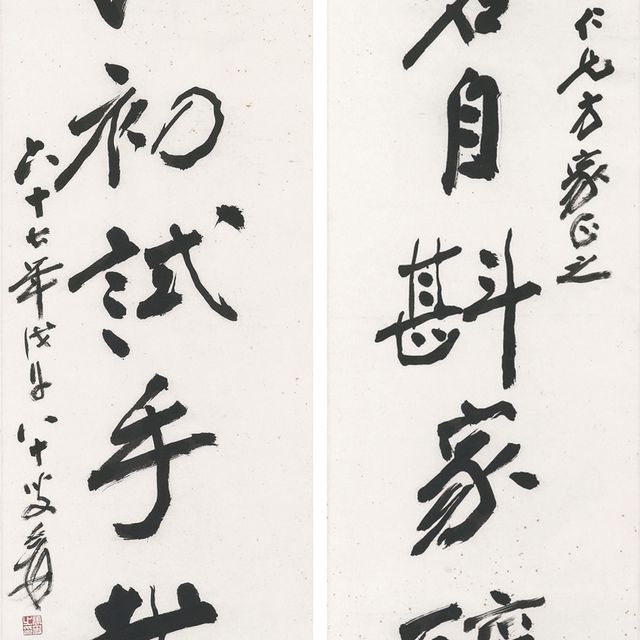 仁兄方家正之
自斟家
初試手
六十七年戊午八十叟爰